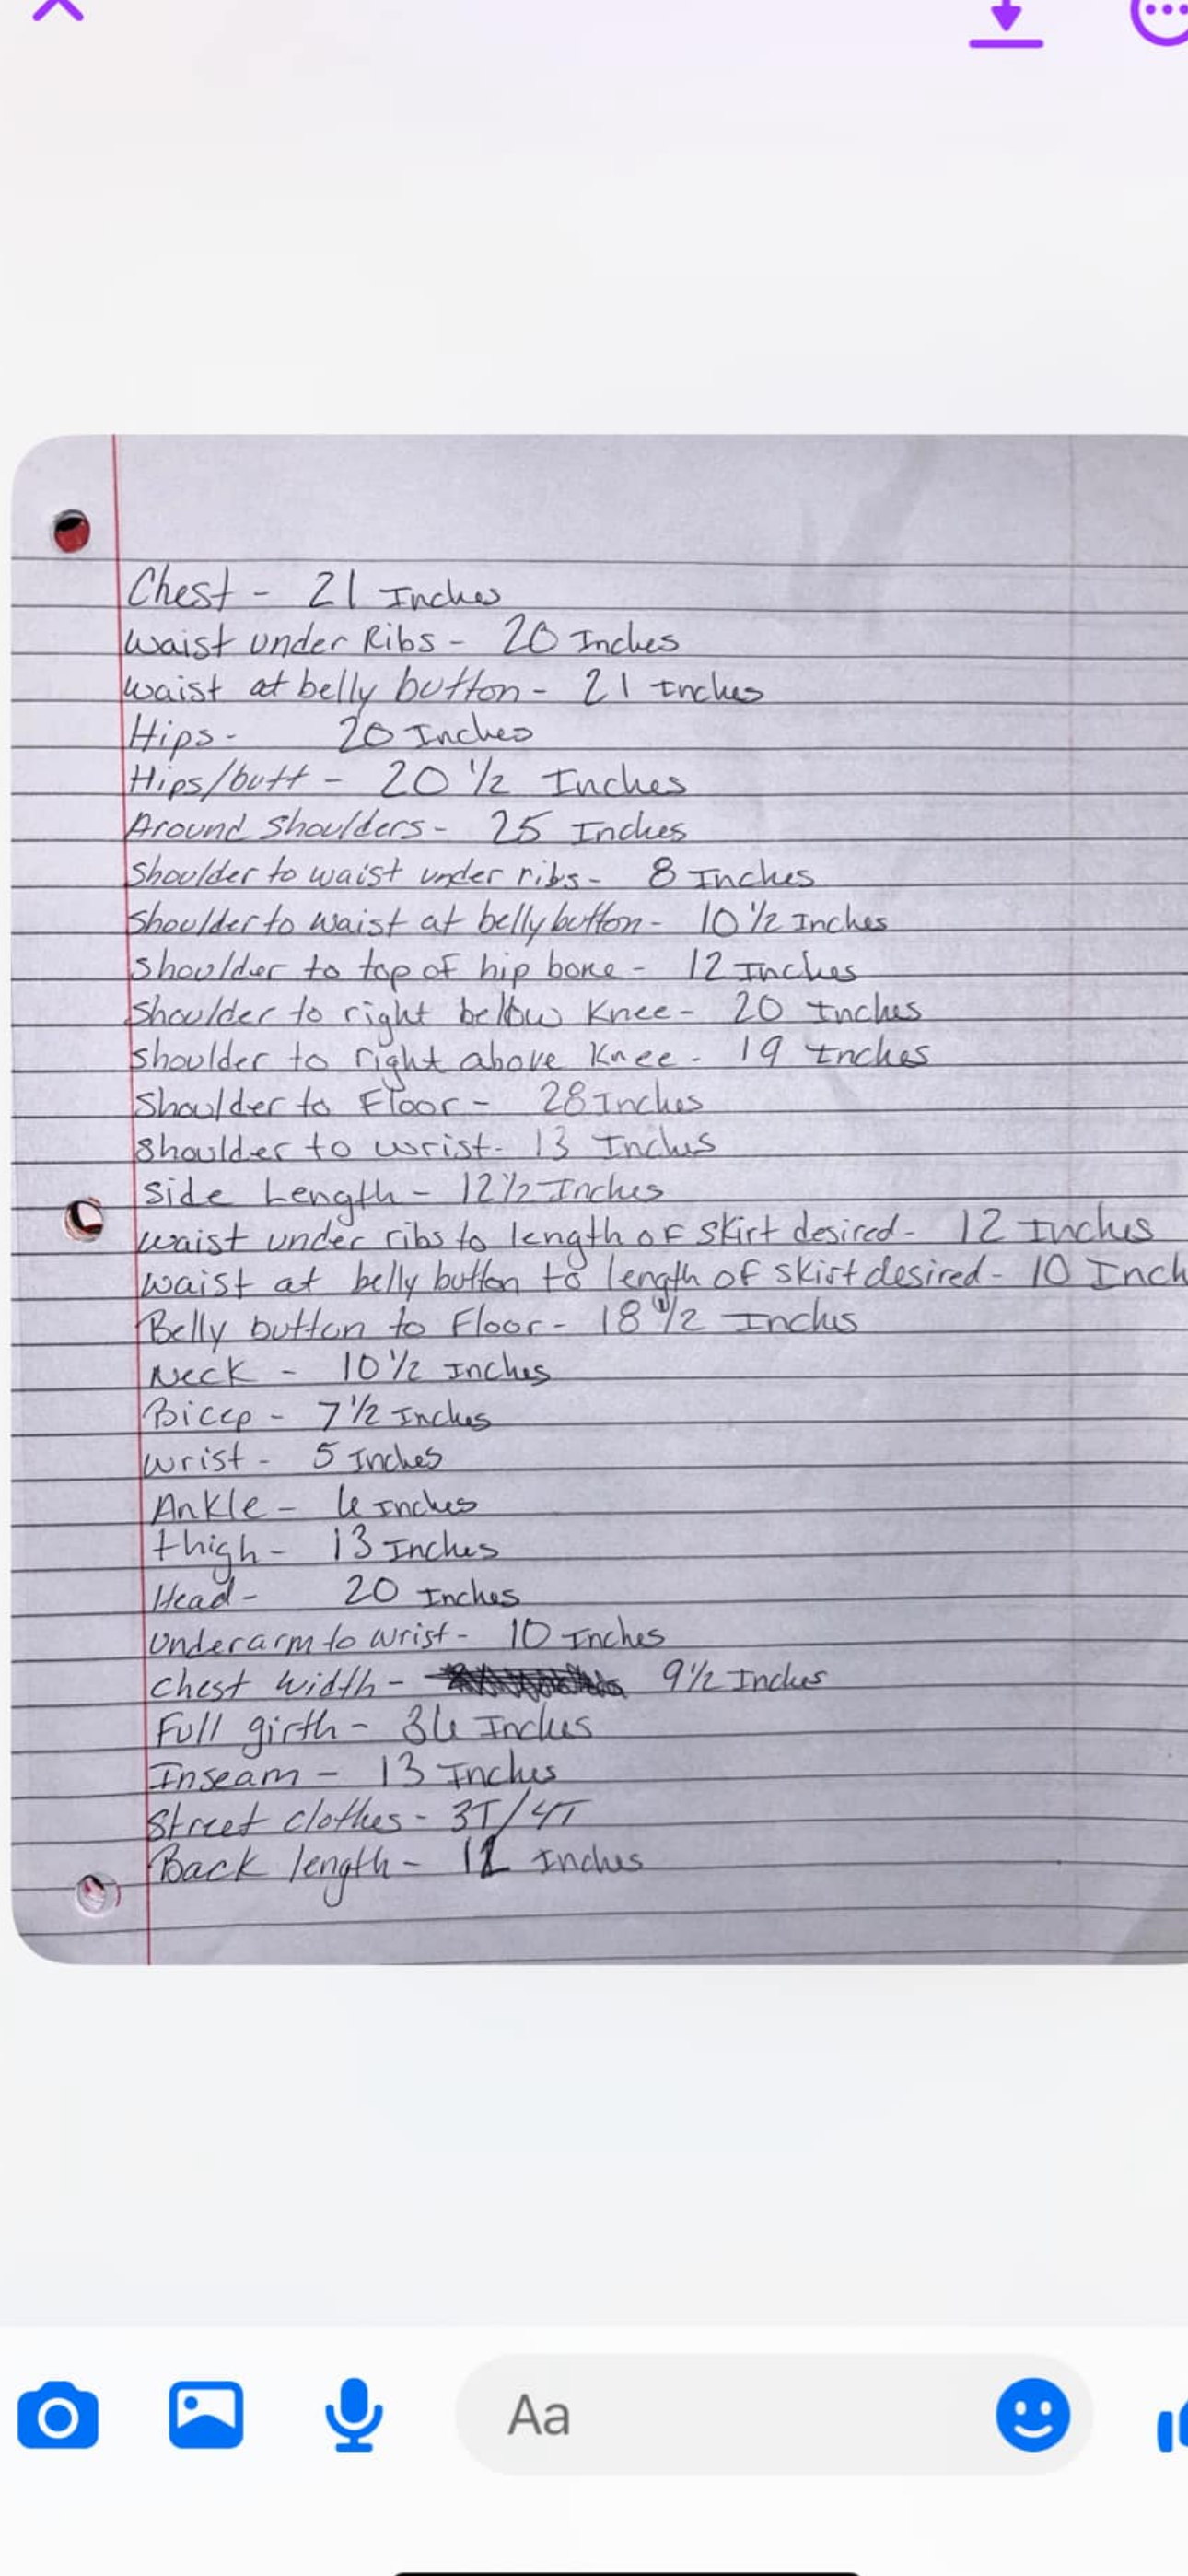 Chest - 21 Inches
Waist under Ribs - 20 Inches
Waist at belly button - 21 Inches
Hips - 20 Inches
Hips/butt - 20 1/2 Inches
Around Shoulders - 25 Inches
Shoulder to waist under ribs - 8 Inches
Shoulder to waist at belly button - 10 1/2 Inches
Shoulder to top of hip bone - 12 Inches
Shoulder to right below Knee - 20 Inches
Shoulder to right above Knee - 19 Inches
Shoulder to Floor - 28 Inches
Shoulder to wrist - 13 Inches
Side Length - 12 1/2 Inches
waist under ribs to length of skirt desired - 12 Inches
waist at belly button to length of skirt desired - 10 Inch
Belly button to Floor - 18 1/2 Inches
Neck - 10 1/2 Inches
Bicep - 7 1/2 Inches
wrist - 5 Inches
Ankle - 6 Inches
thigh - 13 Inches
Head - 20 Inches
Underarm to wrist - 10 Inches
Chest Width - 9 1/2 Inches
Full girth - 36 Inches
Inseam - 13 Inches
Street clothes - 3T/4T
Back length - Inches
Aa